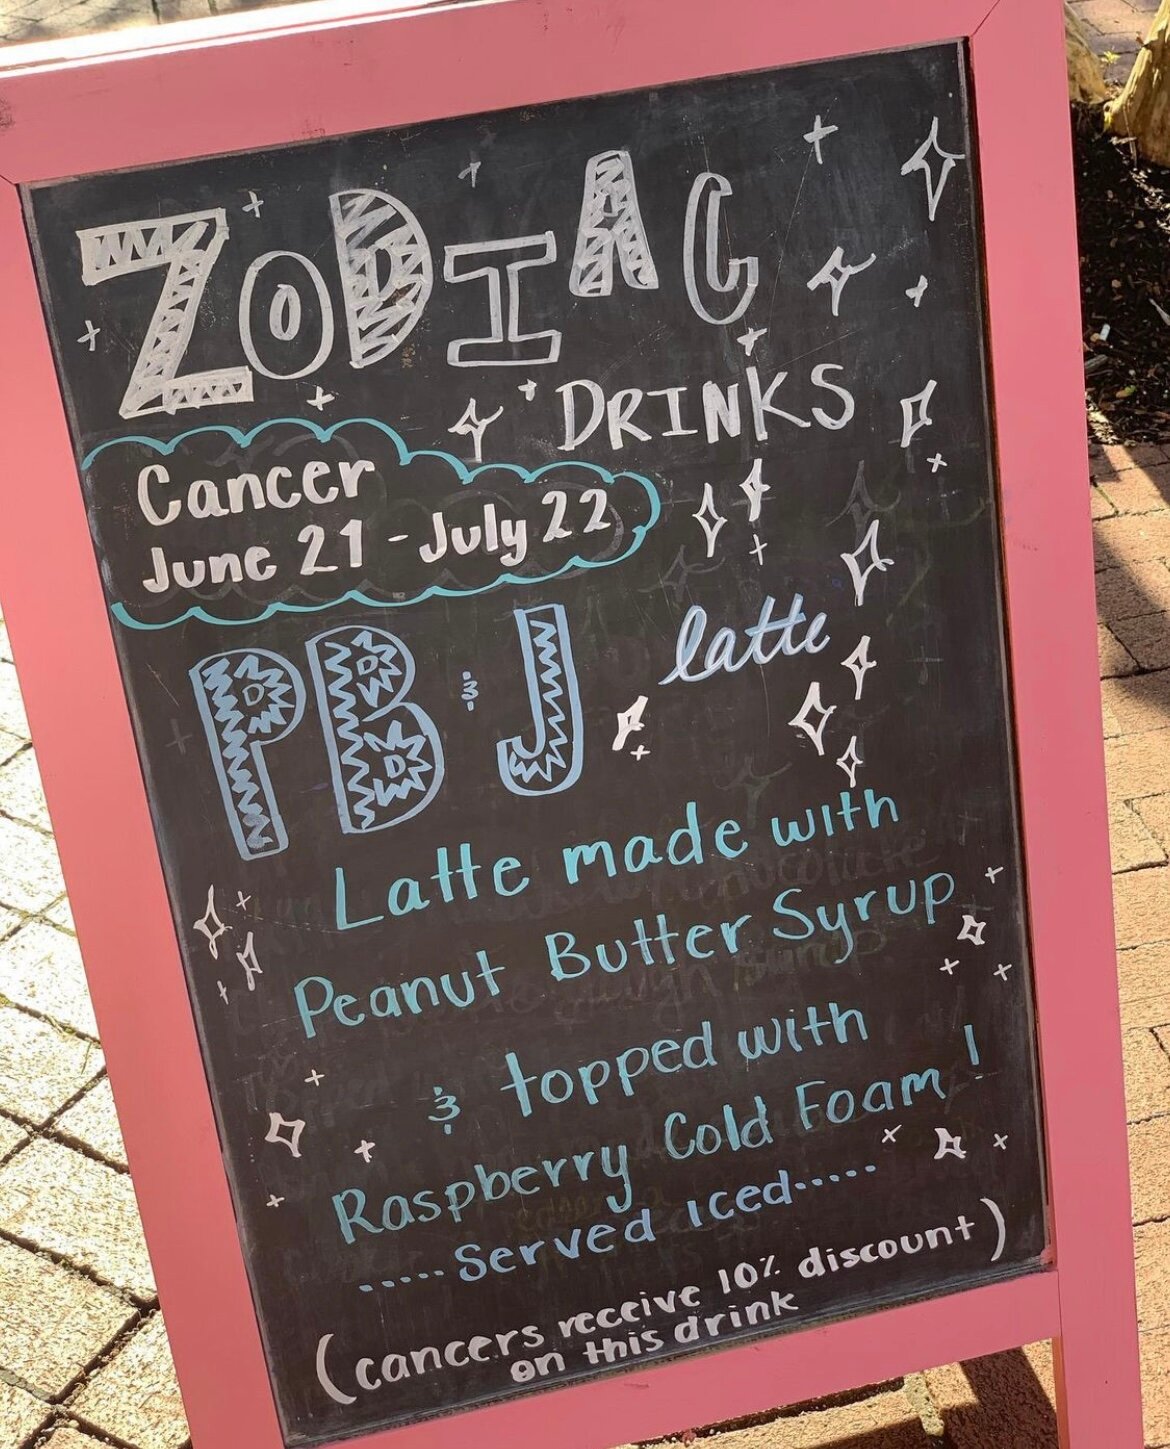 ZODIAC
DRINKS
Cancer
June 21 - July 22
PB & J latte
Latte made with
Peanut Butter Syrup
& topped with
Raspberry Cold Foam!
.....Served Iced.....
(cancers receive 10% discount)
on this drink